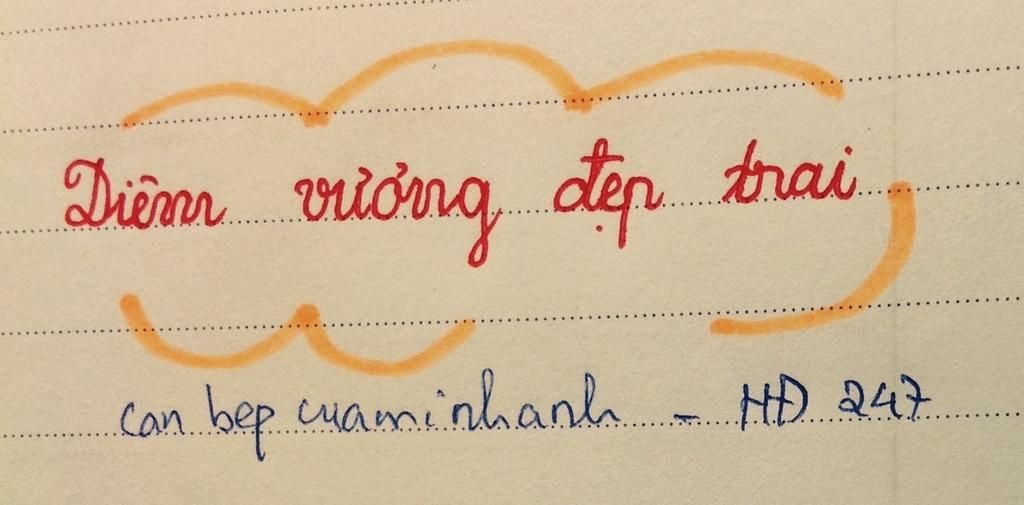 Diêm vương đẹp trai
can bep cuaminhanh - HĐ 247